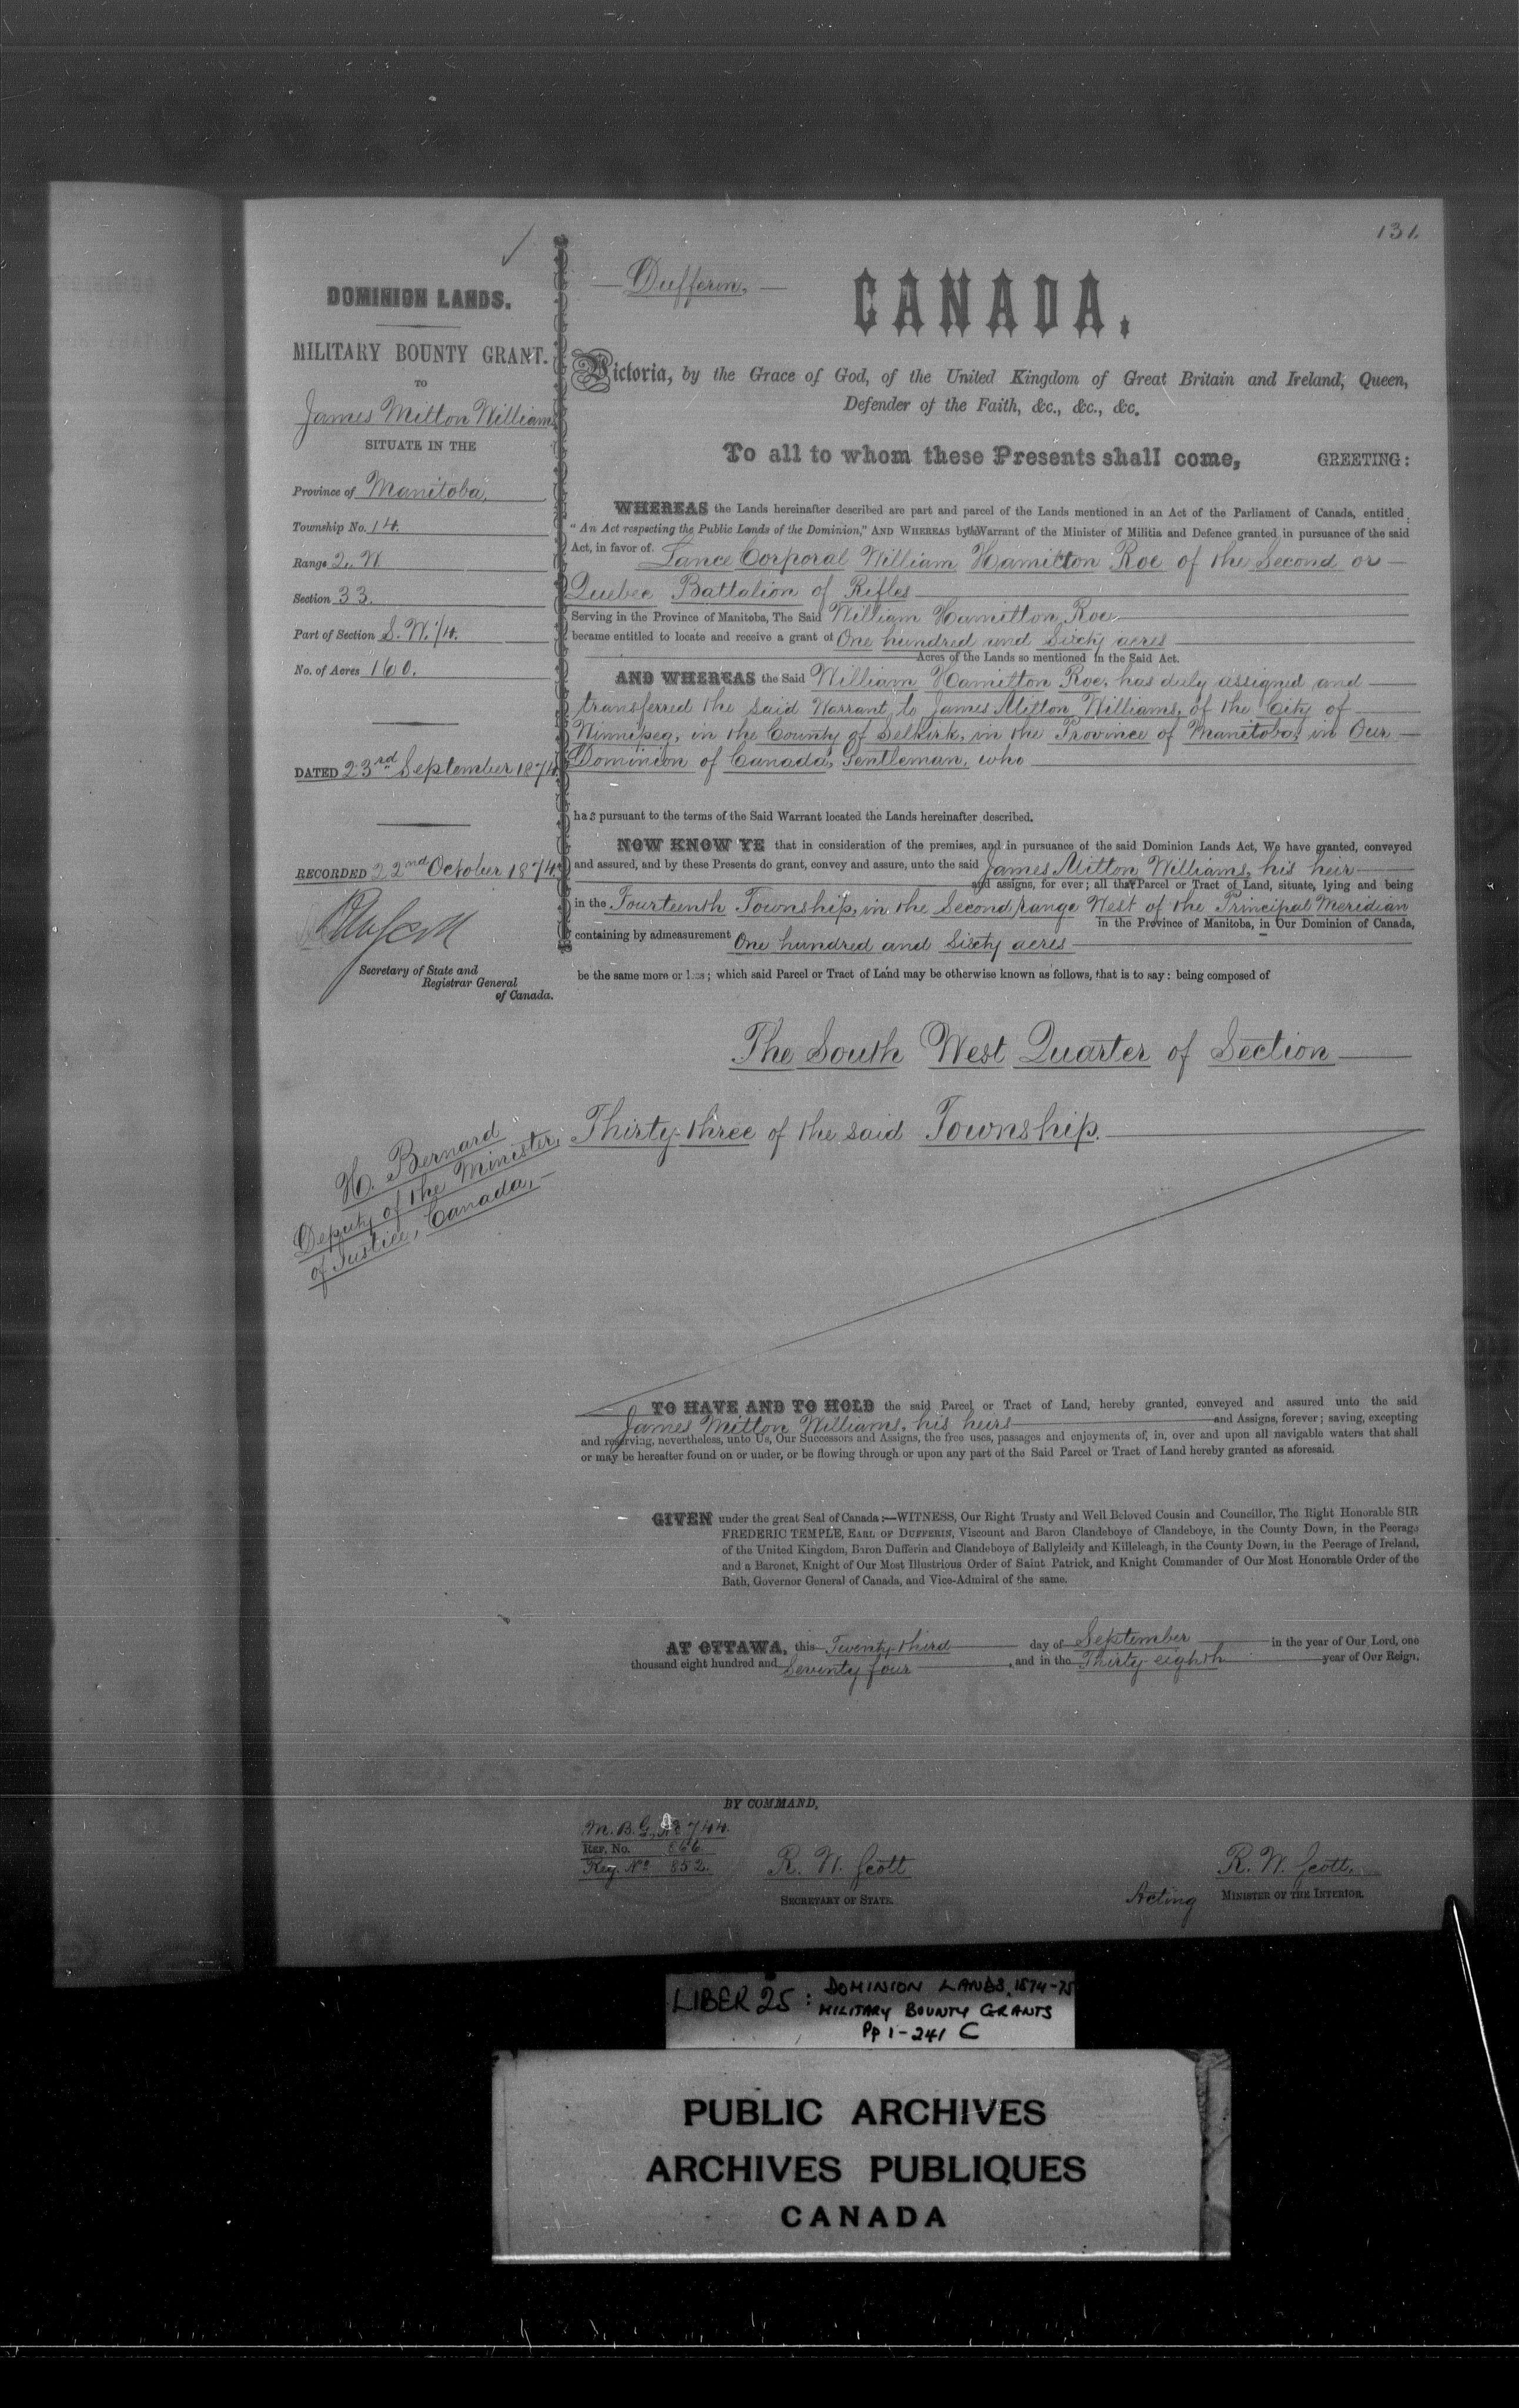 131.
DOMINION LANDS.
MILITARY BOUNTY GRANT.
TO
James Milton Williams
SITUATE IN THE
Province of Manitoba,
Township No. 14.
Range 2. W
Section 33.
Part of Section S. W. 1/4.
No. of Acres 160.
DATED 23rd September 1874
RECORDED 22nd October 1874
Secretary of State and
Registrar General
of Canada.
H. Bernard
Deputy of the Minister,
of Justice, Canada,
Dufferin,
CANADA.
Victoria, by the Grace of God, of the United Kingdom of Great Britain and Ireland, Queen,
Defender of the Faith, &c., &c., &c.
To all to whom these Presents shall come, GREETING:
WHEREAS the Lands hereinafter described are part and parcel of the Lands mentioned in an Act of the Parliament of Canada, entitled
"An Act respecting the Public Lands of the Dominion," AND WHEREAS by the Warrant of the Minister of Militia and Defence granted in pursuance of the said
Act, in favor of. Lance Corporal William Hamilton Roe of the Second or
Quebec Battalion of Rifles
Serving in the Province of Manitoba, The Said William Hamilton Roe
became entitled to locate and receive a grant of One hundred and Sixty acres
Acres of the Lands so mentioned in the Said Act.
AND WHEREAS the Said William Hamilton Roe, has duly assigned and
transferred the said Warrant, to James Milton Williams, of the City of
Winnipeg, in the County of Selkirk, in the Province of Manitoba, in Our
Dominion of Canada, Gentleman, who
has pursuant to the terms of the Said Warrant located the Lands hereinafter described.
NOW KNOW YE that in consideration of the premises, and in pursuance of the said Dominion Lands Act, We have granted, conveyed
and assured, and by these Presents do grant, convey and assure, unto the said James Milton Williams, his heir
and assigns, for ever; all that Parcel or Tract of Land, situate, lying and being
in the Fourteenth Township, in the Second range West of the Principal Meridian
in the Province of Manitoba, in Our Dominion of Canada,
containing by admeasurement One hundred and Sixty acres
be the same more or less; which said Parcel or Tract of Land may be otherwise known as follows, that is to say: being composed of
The South West Quarter of Section
Thirty-three of the said Township.
TO HAVE AND TO HOLD the said Parcel or Tract of Land, hereby granted, conveyed and assured unto the said
James Milton Williams, his heirs and Assigns, forever; saving, excepting
and reserving, nevertheless, unto Us, Our Successors and Assigns, the free uses, passages and enjoyments of, in, over and upon all navigable waters that shall
or may be hereafter found on or under, or be flowing through or upon any part of the Said Parcel or Tract of Land hereby granted as aforesaid.
GIVEN under the great Seal of Canada:—WITNESS, Our Right Trusty and Well Beloved Cousin and Councillor, The Right Honorable SIR
FREDERIC TEMPLE, EARL OF DUFFERIN, Viscount and Baron Clandeboye of Clandeboye, in the County Down, in the Peerage
of the United Kingdom, Baron Dufferin and Clandeboye of Ballyleidy and Killeleagh, in the County Down, in the Peerage of Ireland,
and a Baronet, Knight of Our Most Illustrious Order of Saint Patrick, and Knight Commander of Our Most Honorable Order of the
Bath, Governor General of Canada, and Vice-Admiral of the same.
AT OTTAWA, this Twenty-third day of September in the year of Our Lord, one
thousand eight hundred and Seventy four, and in the Thirty eighth year of Our Reign.
BY COMMAND,
M. B. G. No 744.
REF. No. 866.
Reg. No 852.
R. W. Scott
SECRETARY OF STATE.
R. W. Scott.
Acting MINISTER OF THE INTERIOR.
LIBER 25: DOMINION LANDS, 1874-75
MILITARY BOUNTY GRANTS
Pp 1-241 C
PUBLIC ARCHIVES
ARCHIVES PUBLIQUES
CANADA